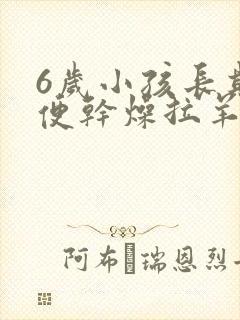 6歲小孩長
便幹燥拉羊
阿布 瑞恩烈